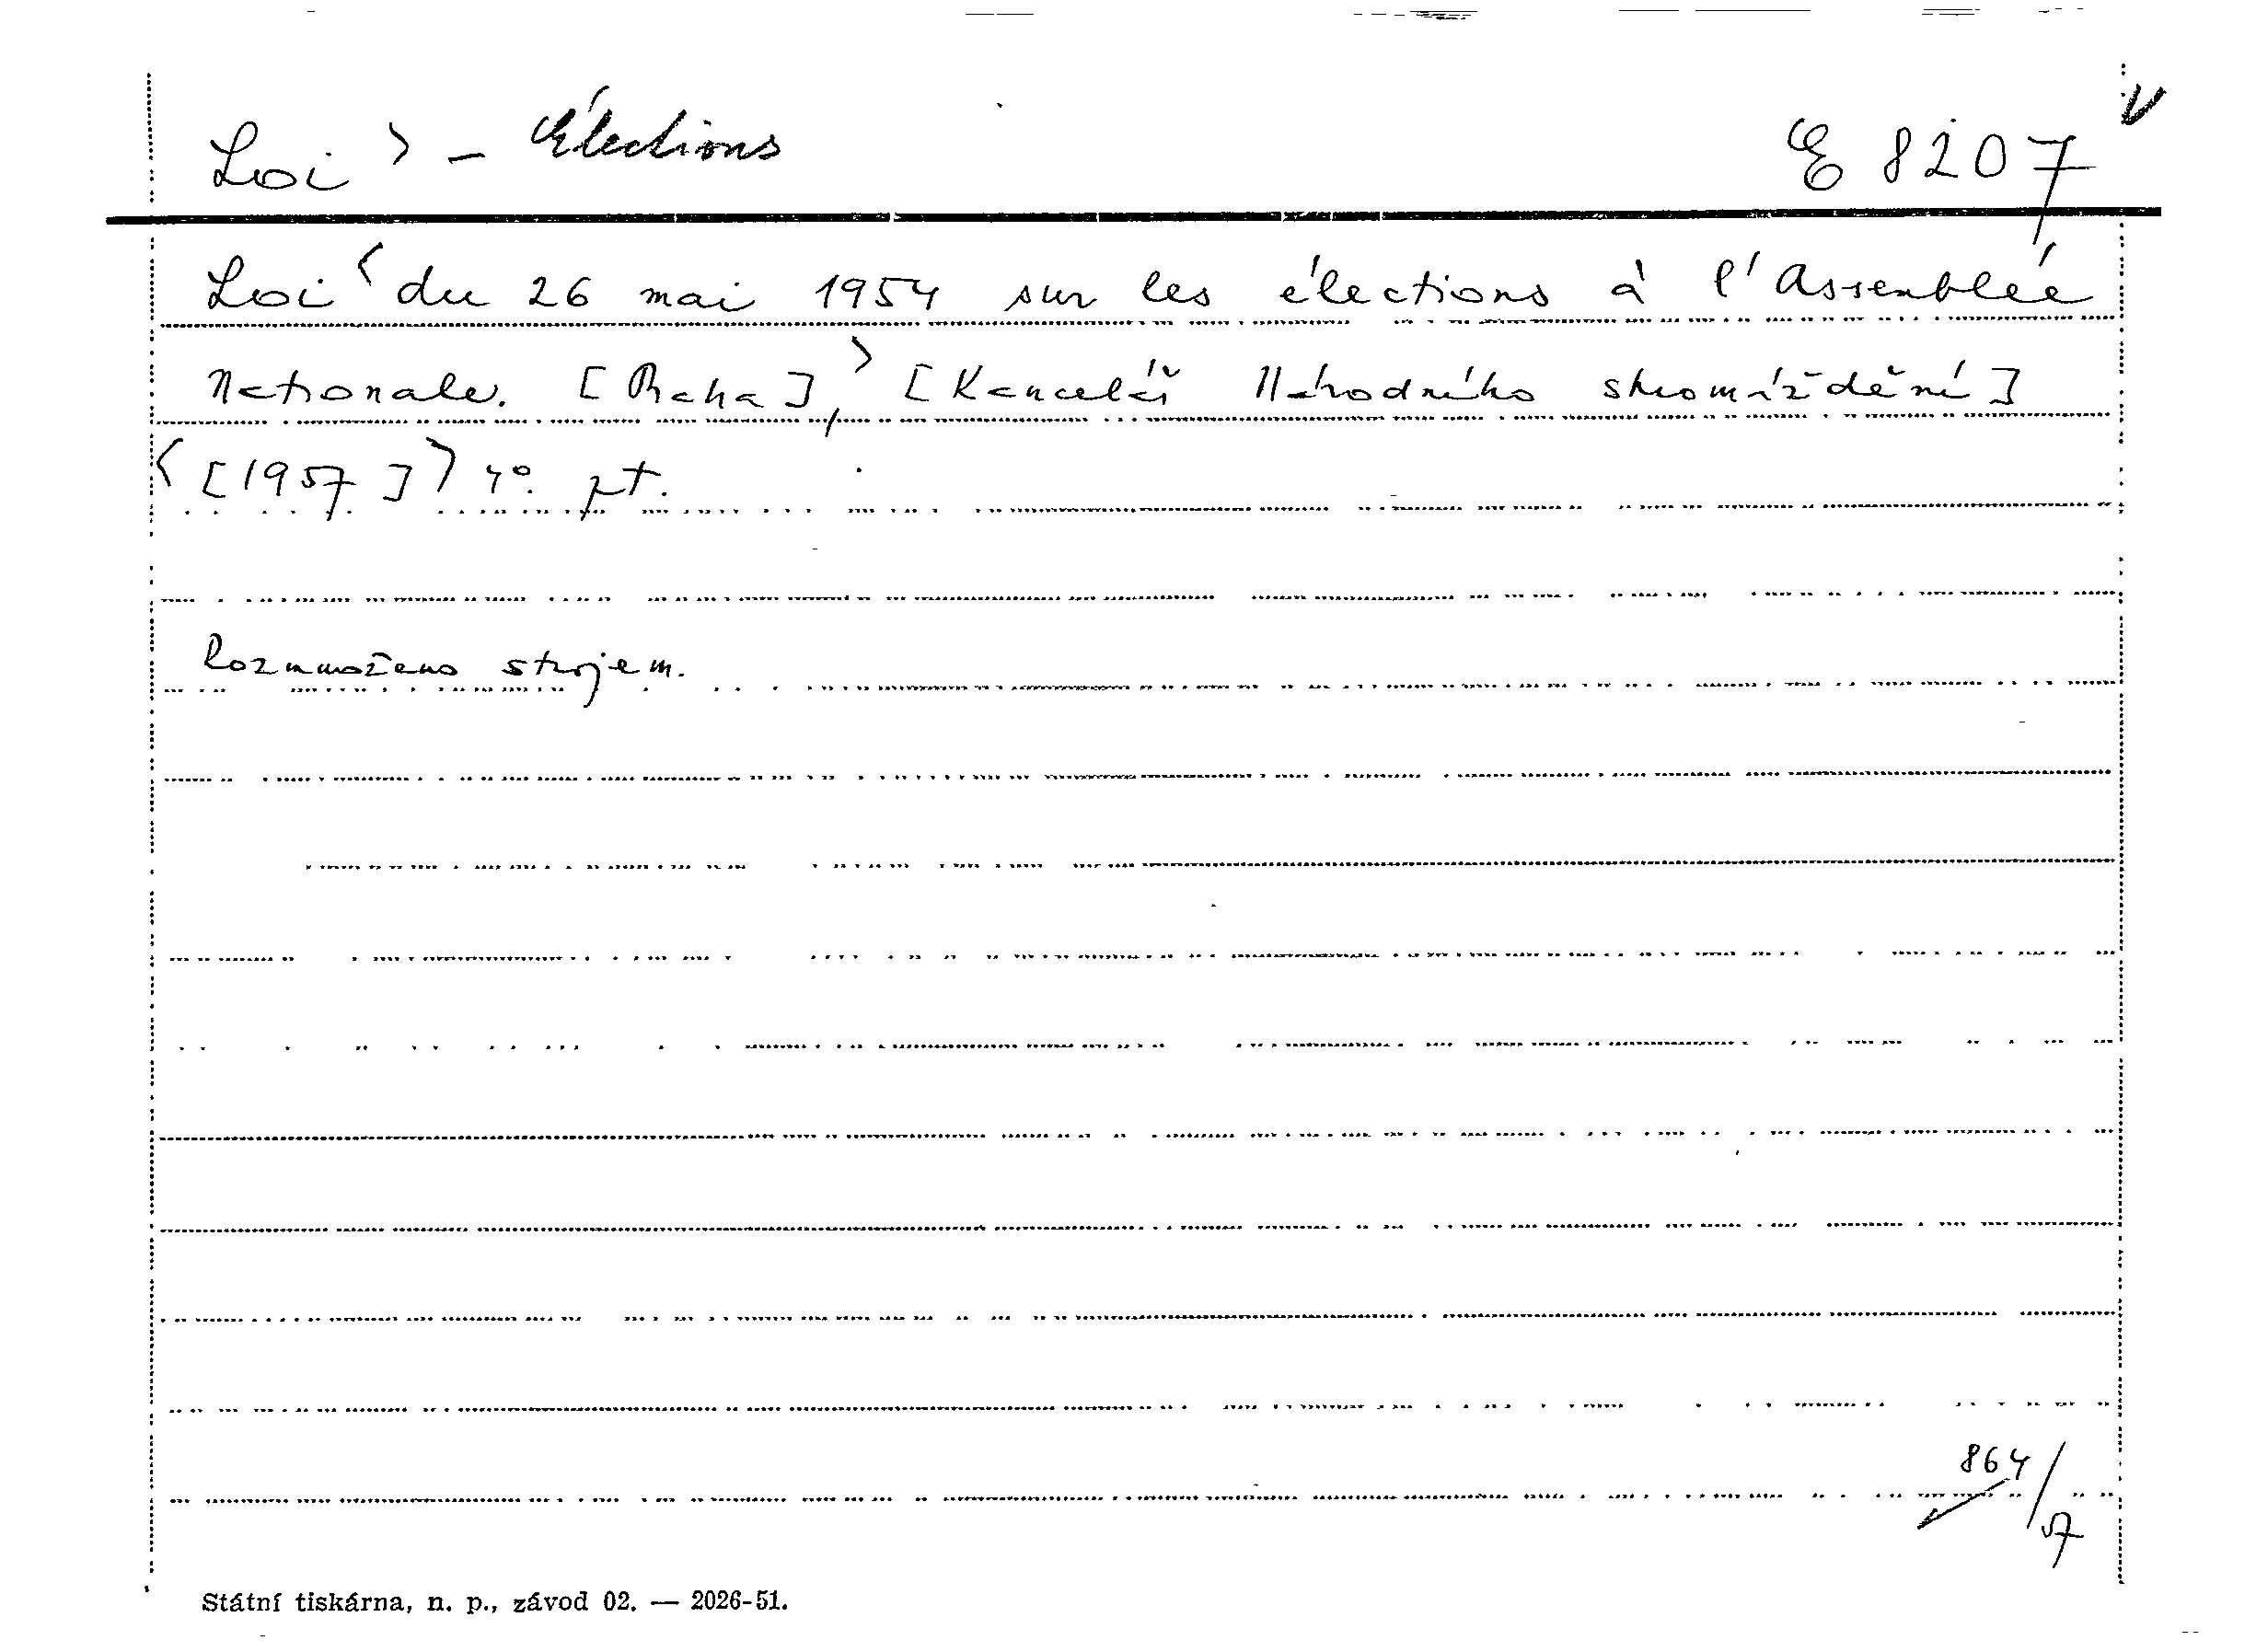 Loi > - Élections E 8207
Loi < du 26 mai 1954 sur les élections à l'Assemblée
Nationale. [Praha], > [Kancelář Národního shromáždění]
< [1957] > 4°. pt.
Rozmnoženo strojem.
864/57
Státní tiskárna, n. p., závod 02. — 2026-51.